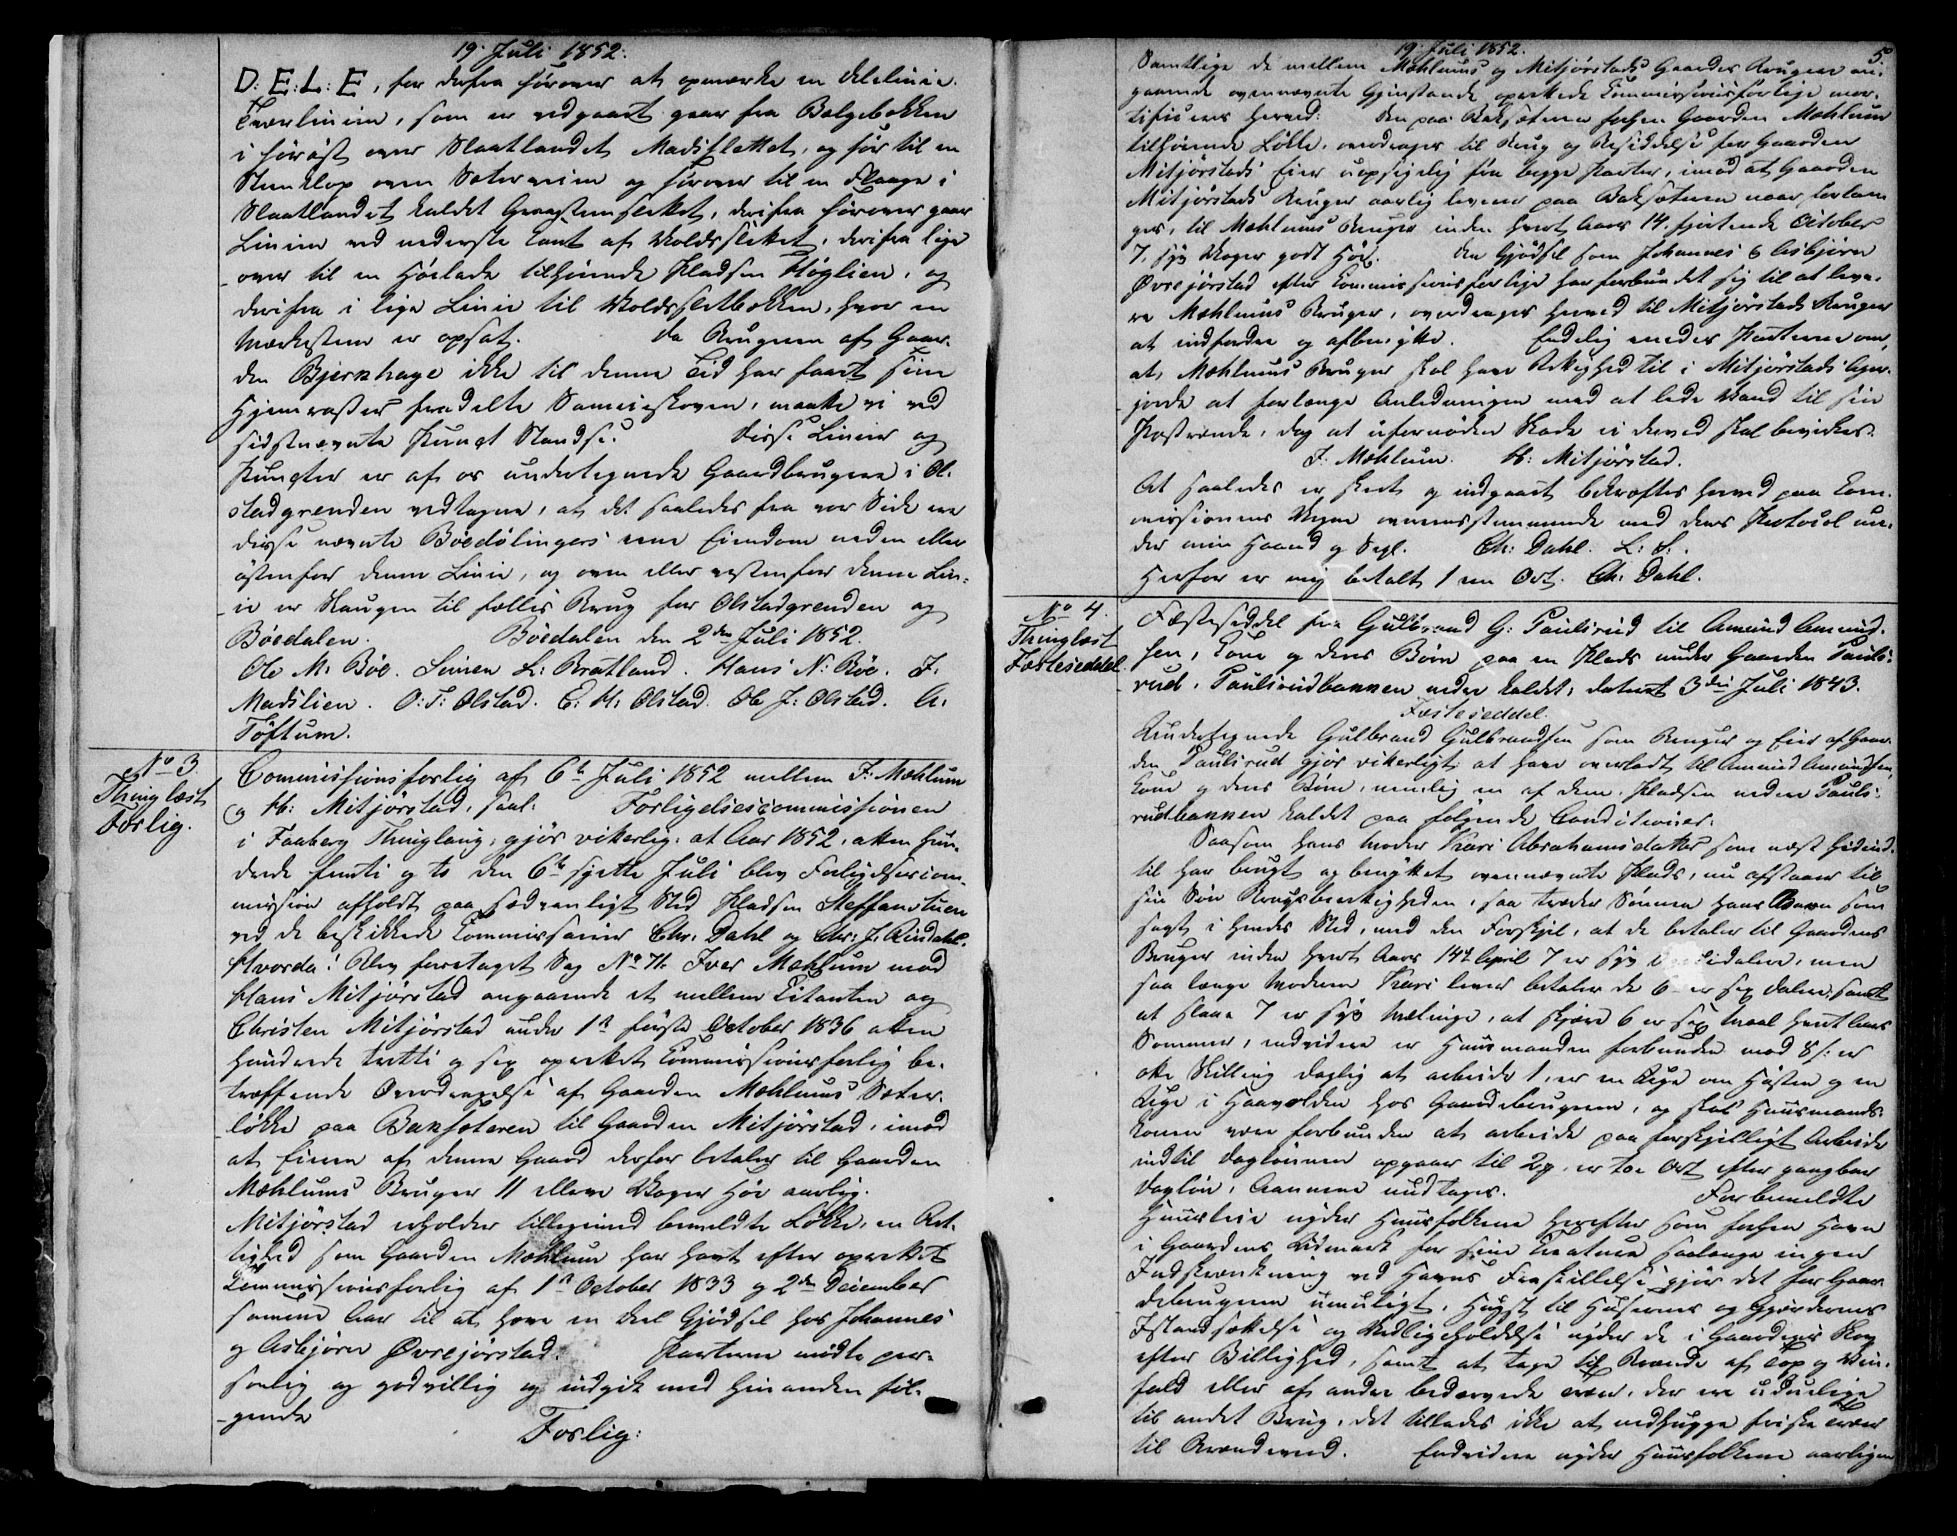 19. Juli 1852.
D: E: L: E, for derfra söröver at opmærke en Delelinie.
Tværlinien, som er vedgaaet gaar fra Bølgebækken
i söröst over Slaatlandet Madslettet, og sör til en
Steenklop oven Sæterveien og söröver til en Flaage i
Slaatlandet kaldet Graastensletet, derifra söröver gaar
Linien ved nederste Kant af Voldsletet, derifra lige
over til en Höelade tilhörende Pladsen Höglien, og
derifra i lige Linie til Voldsletbækken, hvor en
Mærkesteen er opsat. Da Brugeren af Gaar-
den Bjerkhage ikke til denne Tid har faaet sine
Hjemraster fradelte Sameieskoven, maatte vi ved
sidstnævnte Punct standse. Disse Linier og
Puncter er af os undertegnede Gaardbrugere i Ol-
stadgrenden vedtagne, at det saaledes fra vor Side er
disse nævnte Böedölingers rene Eiendom neden eller
östenfor denne Linie, og oven eller vestenfor denne Lin-
ie er Skaugen til fælles Brug for Olstadgrenden og
Böedalen. Böedalen den 2den Juli 1852.
Ole M: Böe. Simen L: Bratland. Hans N: Böe. J:
Madslien. O: T: Olstad. E: H: Olstad. Ole J: Olstad. A:
Töftum.
No 3.
Thinglæst
Forlig.
Commissionsforlig af 6te Juli 1852 mellem J: Mæhlum
og H: Mitjörstad, saal: Forligelsescommissionen
i Faaberg Thinglaug, gjör vitterlig: at Aar 1852, atten Hun-
drede femti og to den 6te sjette Juli blev Forligelsescom-
mission afholdt paa sædvanligt Sted Pladsen Steffanstuen
ved de beskikkede Commissairer Chr: Dahl og Chr: J. Rindahl.
Hvorda! Blev foretaget Sag No 71. Iver Mæhlum mod
Hans Mitjörstad angaaende et mellem Citanten og
Christen Mitjörstad under 1ste förste October 1836 atten
Hundrede tretti og sex oprettet Commissionsforlig be-
træffende Overdragelse af Gaarden Mæhlums Sæter-
lökke paa Baksæteren til Gaarden Mitjörstad, imod
at Eieren af denne Gaard derfor betaler til Gaarden
Mæhlums Bruger 11 elleve Voger Höe aarlig.
Mitjörstad erholder tilligemed bemeldte Lökke, en Ret-
tighed som Gaarden Mæhlum har havt efter oprettet
Commissionsforlig af 1ste October 1833 og 2den December
samme Aar til at have en Deel Gjödsel hos Johannes
og Asbjörn Övrejörstad. Parterne mödte per-
sonlig og godvillig og indgik med hinanden föl-
gende
Forlig:
19. Juli 1852.
5.
Samtlige de mellem Mæhlums og Mitjörstads Gaardes Brugere an-
gaaende ovennævnte Gjenstande oprettede Commissionsforlige mor-
tificeres herved: Den paa Baksæteren forhen Gaarden Mæhlum
tilhörende Lökke, overdrages til Brug og Besiddelse for Gaarden
Mitjörstads Eier uopsigelig fra begge Parter, imod at Gaarden
Mitjörstads Bruger aarlig leverer paa Baksæteren naar forlan-
ges, til Mæhlums Bruger inden hvert Aars 14. fjortende October
7, syv Voger godt Höe. Den Gjödsel som Johannes & Asbjörn
Övrejörstad efter Commissionsforlige har forbundet sig til at leve-
re Mæhlums Bruger, overdrages herved til Mitjörstads Bruger
at indfordre og afbenytte. Endelig enedes Parterne om,
at Mæhlums Bruger skal have Rettighed til i Mitjörstads Eien-
jorde at forlænge Anledningen med at lede Vand til sin
Postrende, dog at ufornöden Skade ei derved skal bevirkes.
J: Mæhlum. H: Mitjörstad.
At saaledes er skeet og indgaaet bekræftes herved paa Com-
missionens Vegne overensstemmende med dens Protocol un-
der min Haand og Segl. Ch: Dahl. L: S:.
Herfor er mig betalt 1 een Ort. Ch: Dahl.
No 4.
Thinglæst
Fæsteseddel.
Fæsteseddel fra Gulbrand G: Paulsrud til Amund Amund-
sen, Kone og deres Börn paa en Plads under Gaarden Pauls-
rud, Paulsrudbakken nedre kaldet, dateret 3die Juli 1843.
Fæsteseddel.
Undertegnede Gulbrand Gulbrandsen som Bruger og Eier af Gaar-
den Paulsrud gjör vitterligt at have overladt til Amund Amundsen,
Kone og deres Börn, nemlig en af dem, Pladsen nedre Pauls-
rudbakken kaldet paa fölgende Conditioner:
Saasom hans Moder Kari Abrahamsdatter som næst hidind-
til har brugt og benyttet ovennævnte Plads, nu afstaaer til
sin Sön Brugsberettigheden, saa træder Sönnen Hans Börn som
sagt i hendes Sted, med den Forskjel, at de betaler til Gaardens
Bruger inden hvert Aars 14de April 7 er syv Speciedaler, men
saa længe Moderen Kari lever betaler de 6 er sex Daler, samt
at slaae 7 er syv Mælinge, at skjære 6 er sex Maal hvert Aars
Sommer, endvidere er Huusmanden forbunden mod 8 s: er
otte Skilling daglig at arbeide 1, er en Uge om Hösten og en
Uge i Haavolden hos Gaardbrugeren, og skal Huusmands-
konen være forbunden at arbeide paa forskjelligt Arbeide
indtil Daglönnen opgaar til 2 er toe Ort efter gangbar
Daglön, Aannene undtages. Forbemeldte
Huusleie nyder Huusfolkene herefter som forhen Havn
i Gaardens Udmark for sine Creature saalænge ingen
Indskrænkning ved Havns Fraskillelse gjör det for Gaar-
debrugeren umuligt. Hugst til Husenes og Gjærdernes
Istandsættelse og Vedligeholdelse nyder de i Gaardens Skov
efter Billighed, samt at tage til Brænde af Top og Vin-
fald eller af andre bedærvede Træer, der ere udulige
til andet Brug, det tillades ikke at nedhugge friske Træer
til Brændeved. Endvidere nyder Huusfolkene aarligen